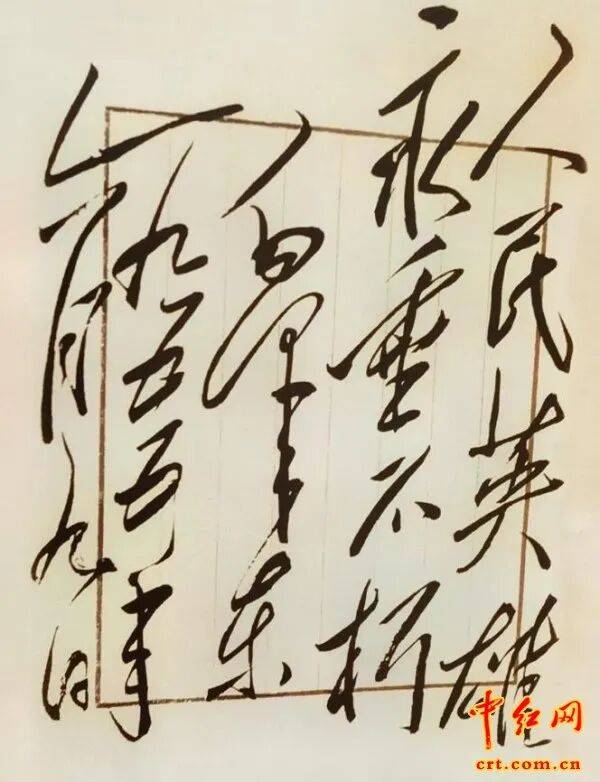 人民英雄
永垂不朽
毛泽东
一九五五年
六月九日
中红网
crt.com.cn